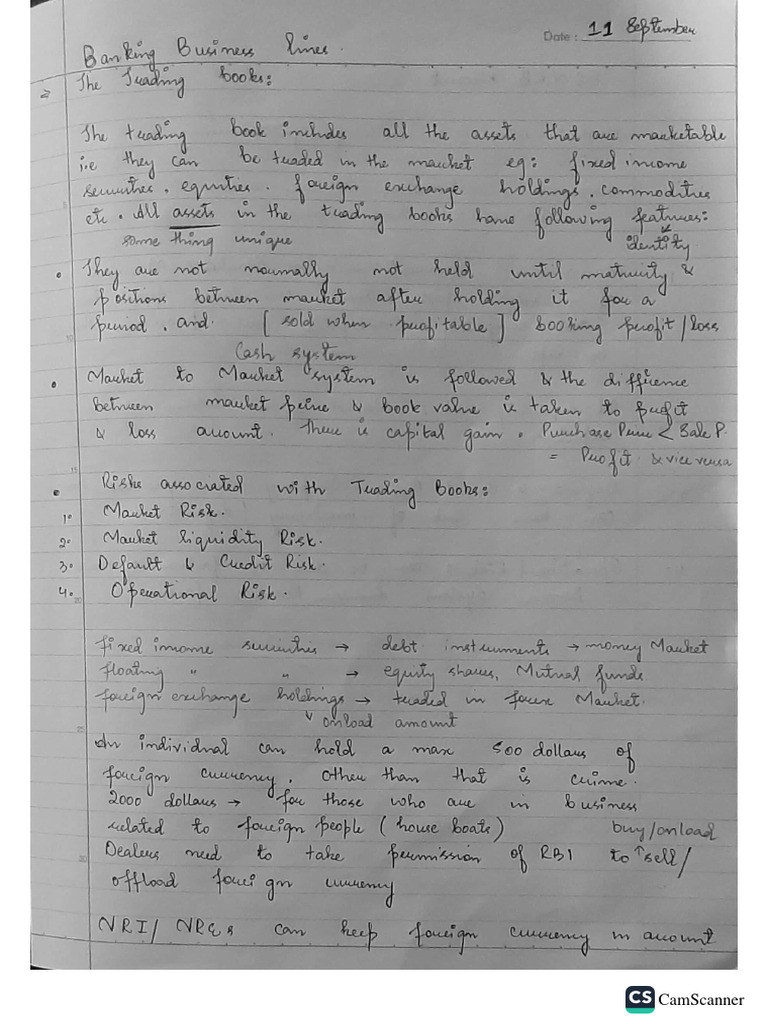 Date : 11 September
Banking Business lines.
⇒ The Trading books:
The trading book includes all the assets that are marketable
i.e they can be traded in the market eg: fixed income
securities, equities. foreign exchange holdings, commodities
etc. All assets in the trading books have following features:
some thing unique identity
• They are not normally not held until maturity &
positions between market after holding it for a
period, and [sold when profitable] booking profit/loss
Cash system
• Market to Market system is followed & the difference
between market price & book value is taken to profit
& loss account. There is capital gain. Purchase Price < Sale P.
= Profit & vice versa
• Risks associated with Trading Books:
1. Market Risk.
2. Market liquidity Risk.
3. Default & Credit Risk.
4. Operational Risk.
fixed income securities → debt instruments → money Market
floating " " → equity shares, Mutual funds.
foreign exchange holdings → traded in forex Market.
↓ onload amount
An individual can hold a max 500 dollars of
foreign currency. Other than that is crime.
2000 dollars → for those who are in business
related to foreign people (house boats) buy/onload
Dealers need to take permission of RBI to ↑ sell/
offload foreign currency
NRI/ NREs can keep foreign currency in account
CS CamScanner